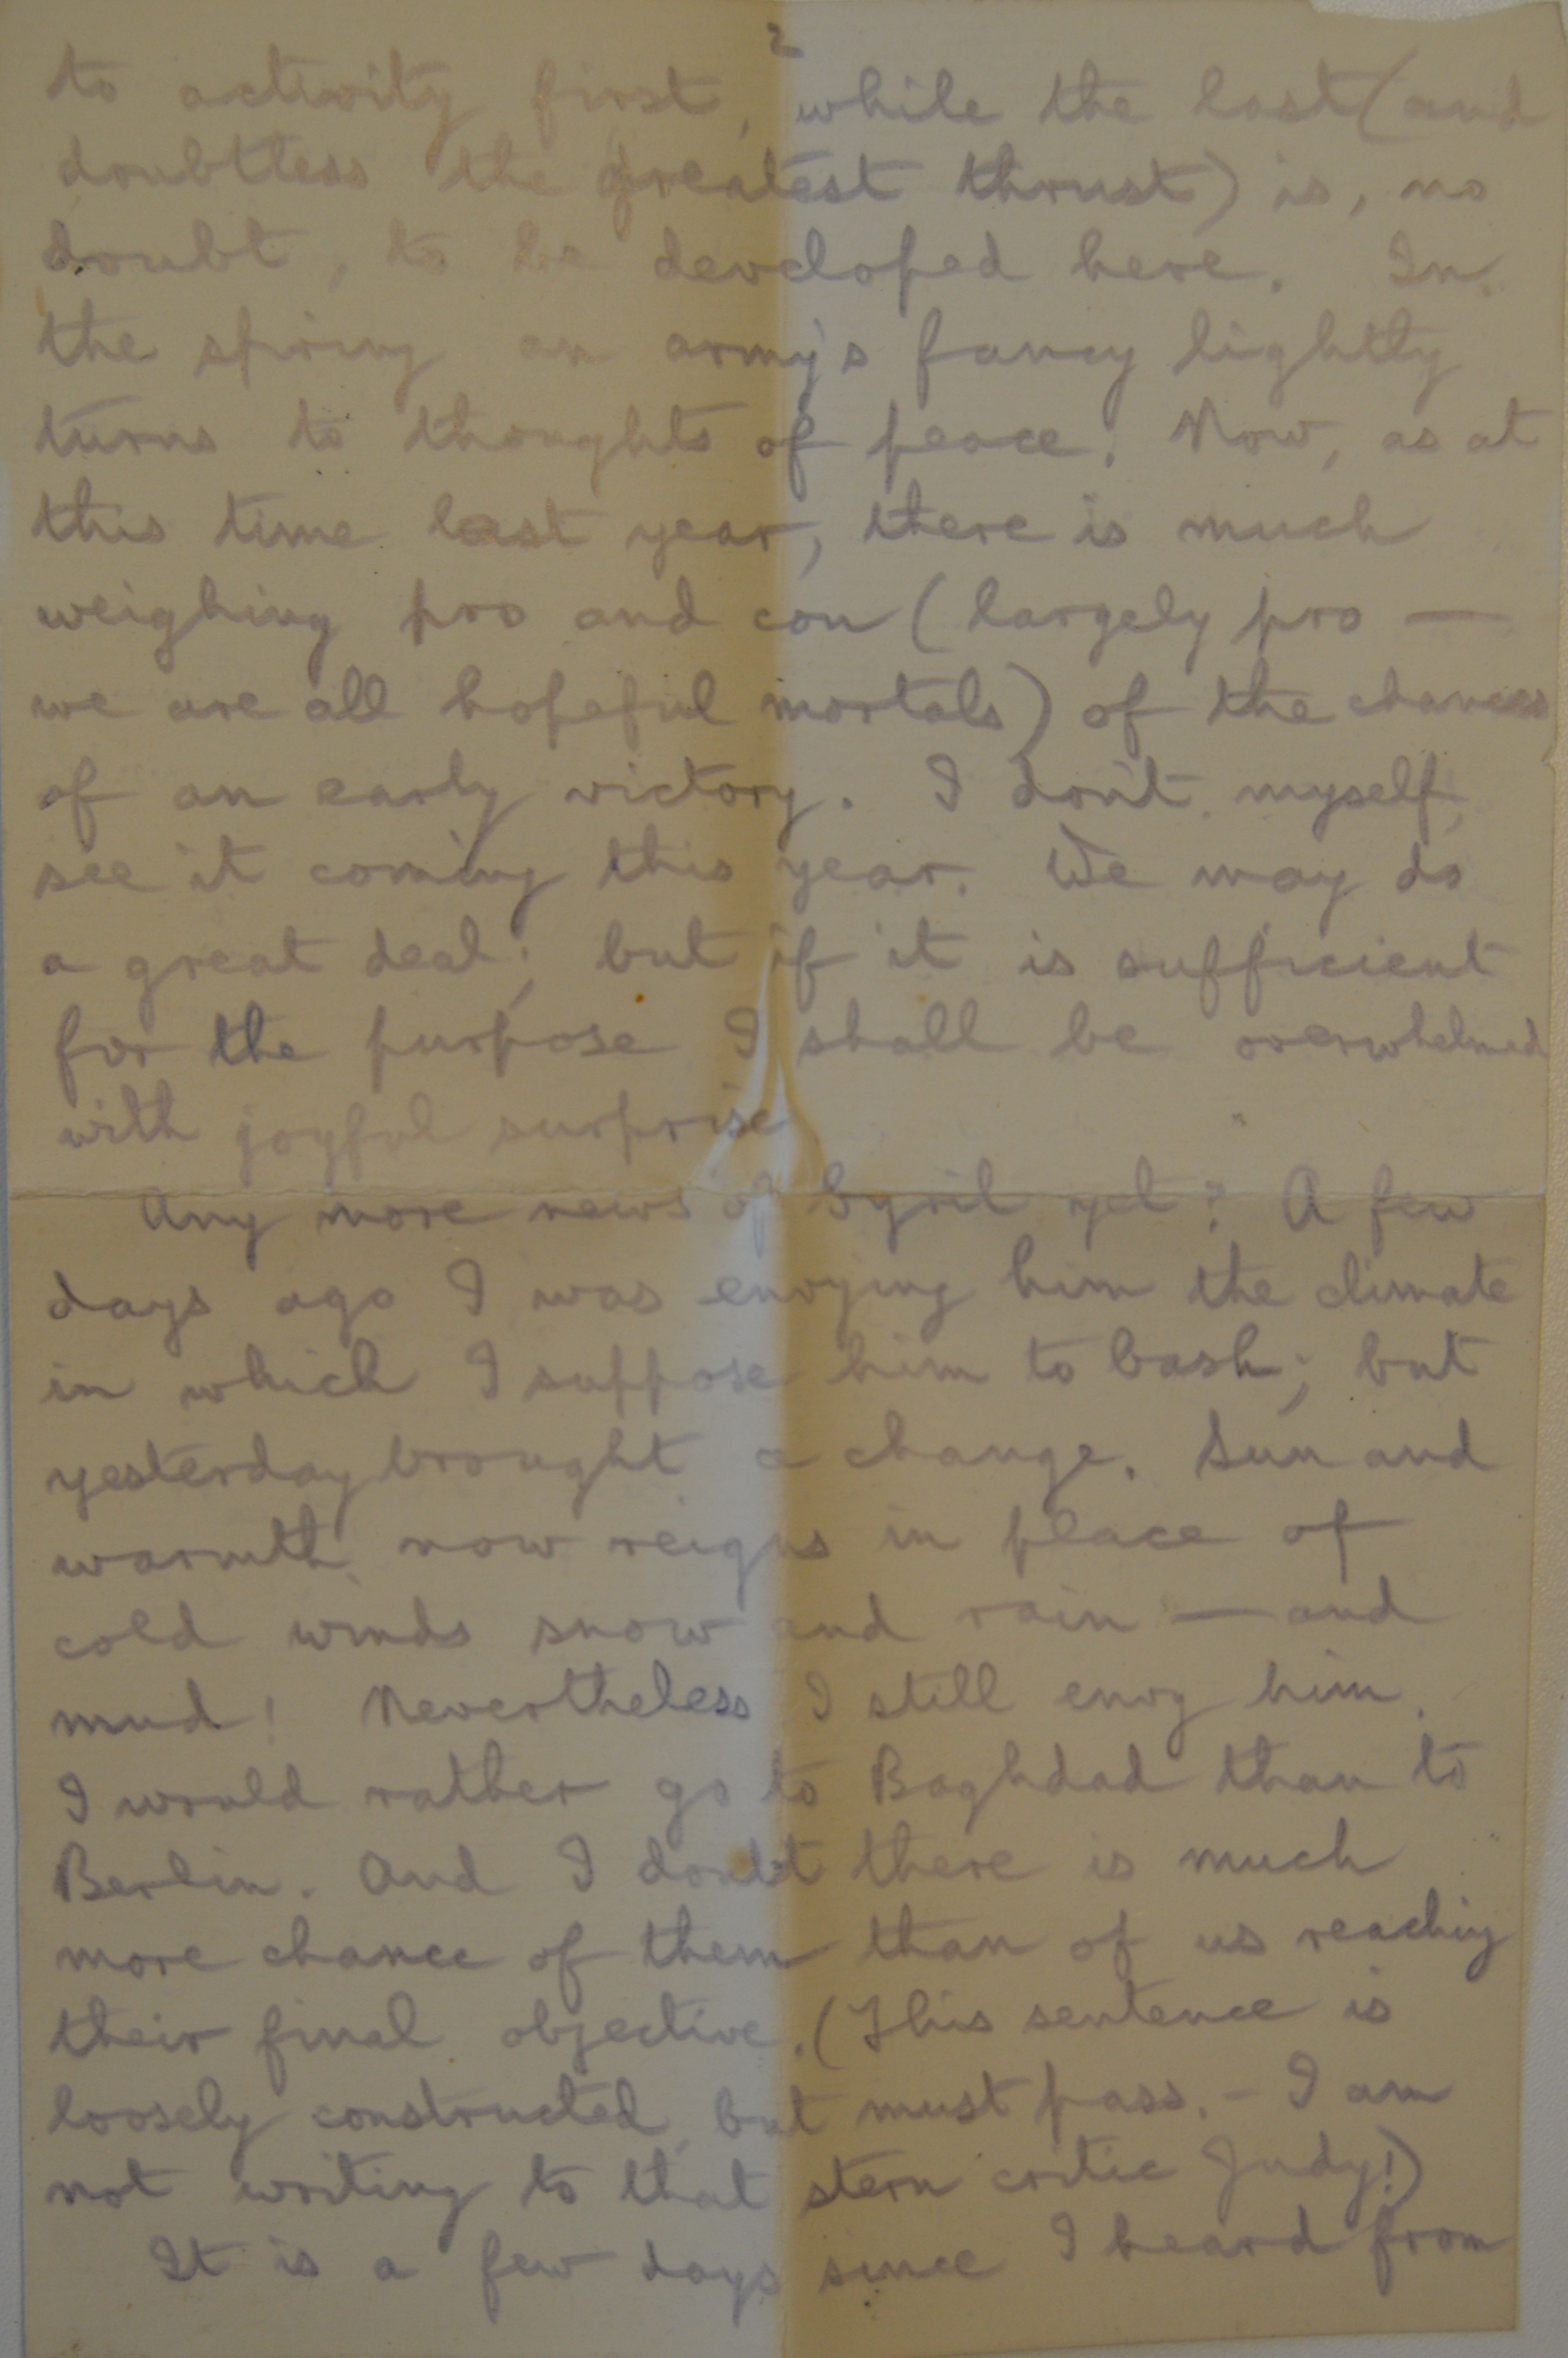 2
to activity first, while the last (and
doubtless the greatest thrust) is, no
doubt, to be developed here. In
the spring an army's fancy lightly
turns to thoughts of peace. Now, as at
this time last year, there is much
weighing pro and con (largely pro —
we are all hopeful mortals) of the chances
of an early victory. I don't myself,
see it coming this year. We may do
a great deal; but if it is sufficient
for the purpose I shall be overwhelmed
with joyful surprise
Any more news of Cyril yet? A few
days ago I was envying him the climate
in which I suppose him to bask; but
yesterday brought a change. Sun and
warmth now reigns in place of
cold winds snow and rain — and
mud! Nevertheless I still envy him.
I would rather go to Baghdad than to
Berlin. And I doubt there is much
more chance of them than of us reaching
their final objective. (This sentence is
loosely constructed, but must pass. - I am
not writing to that stern critic Judy!)
It is a few days since I heard from